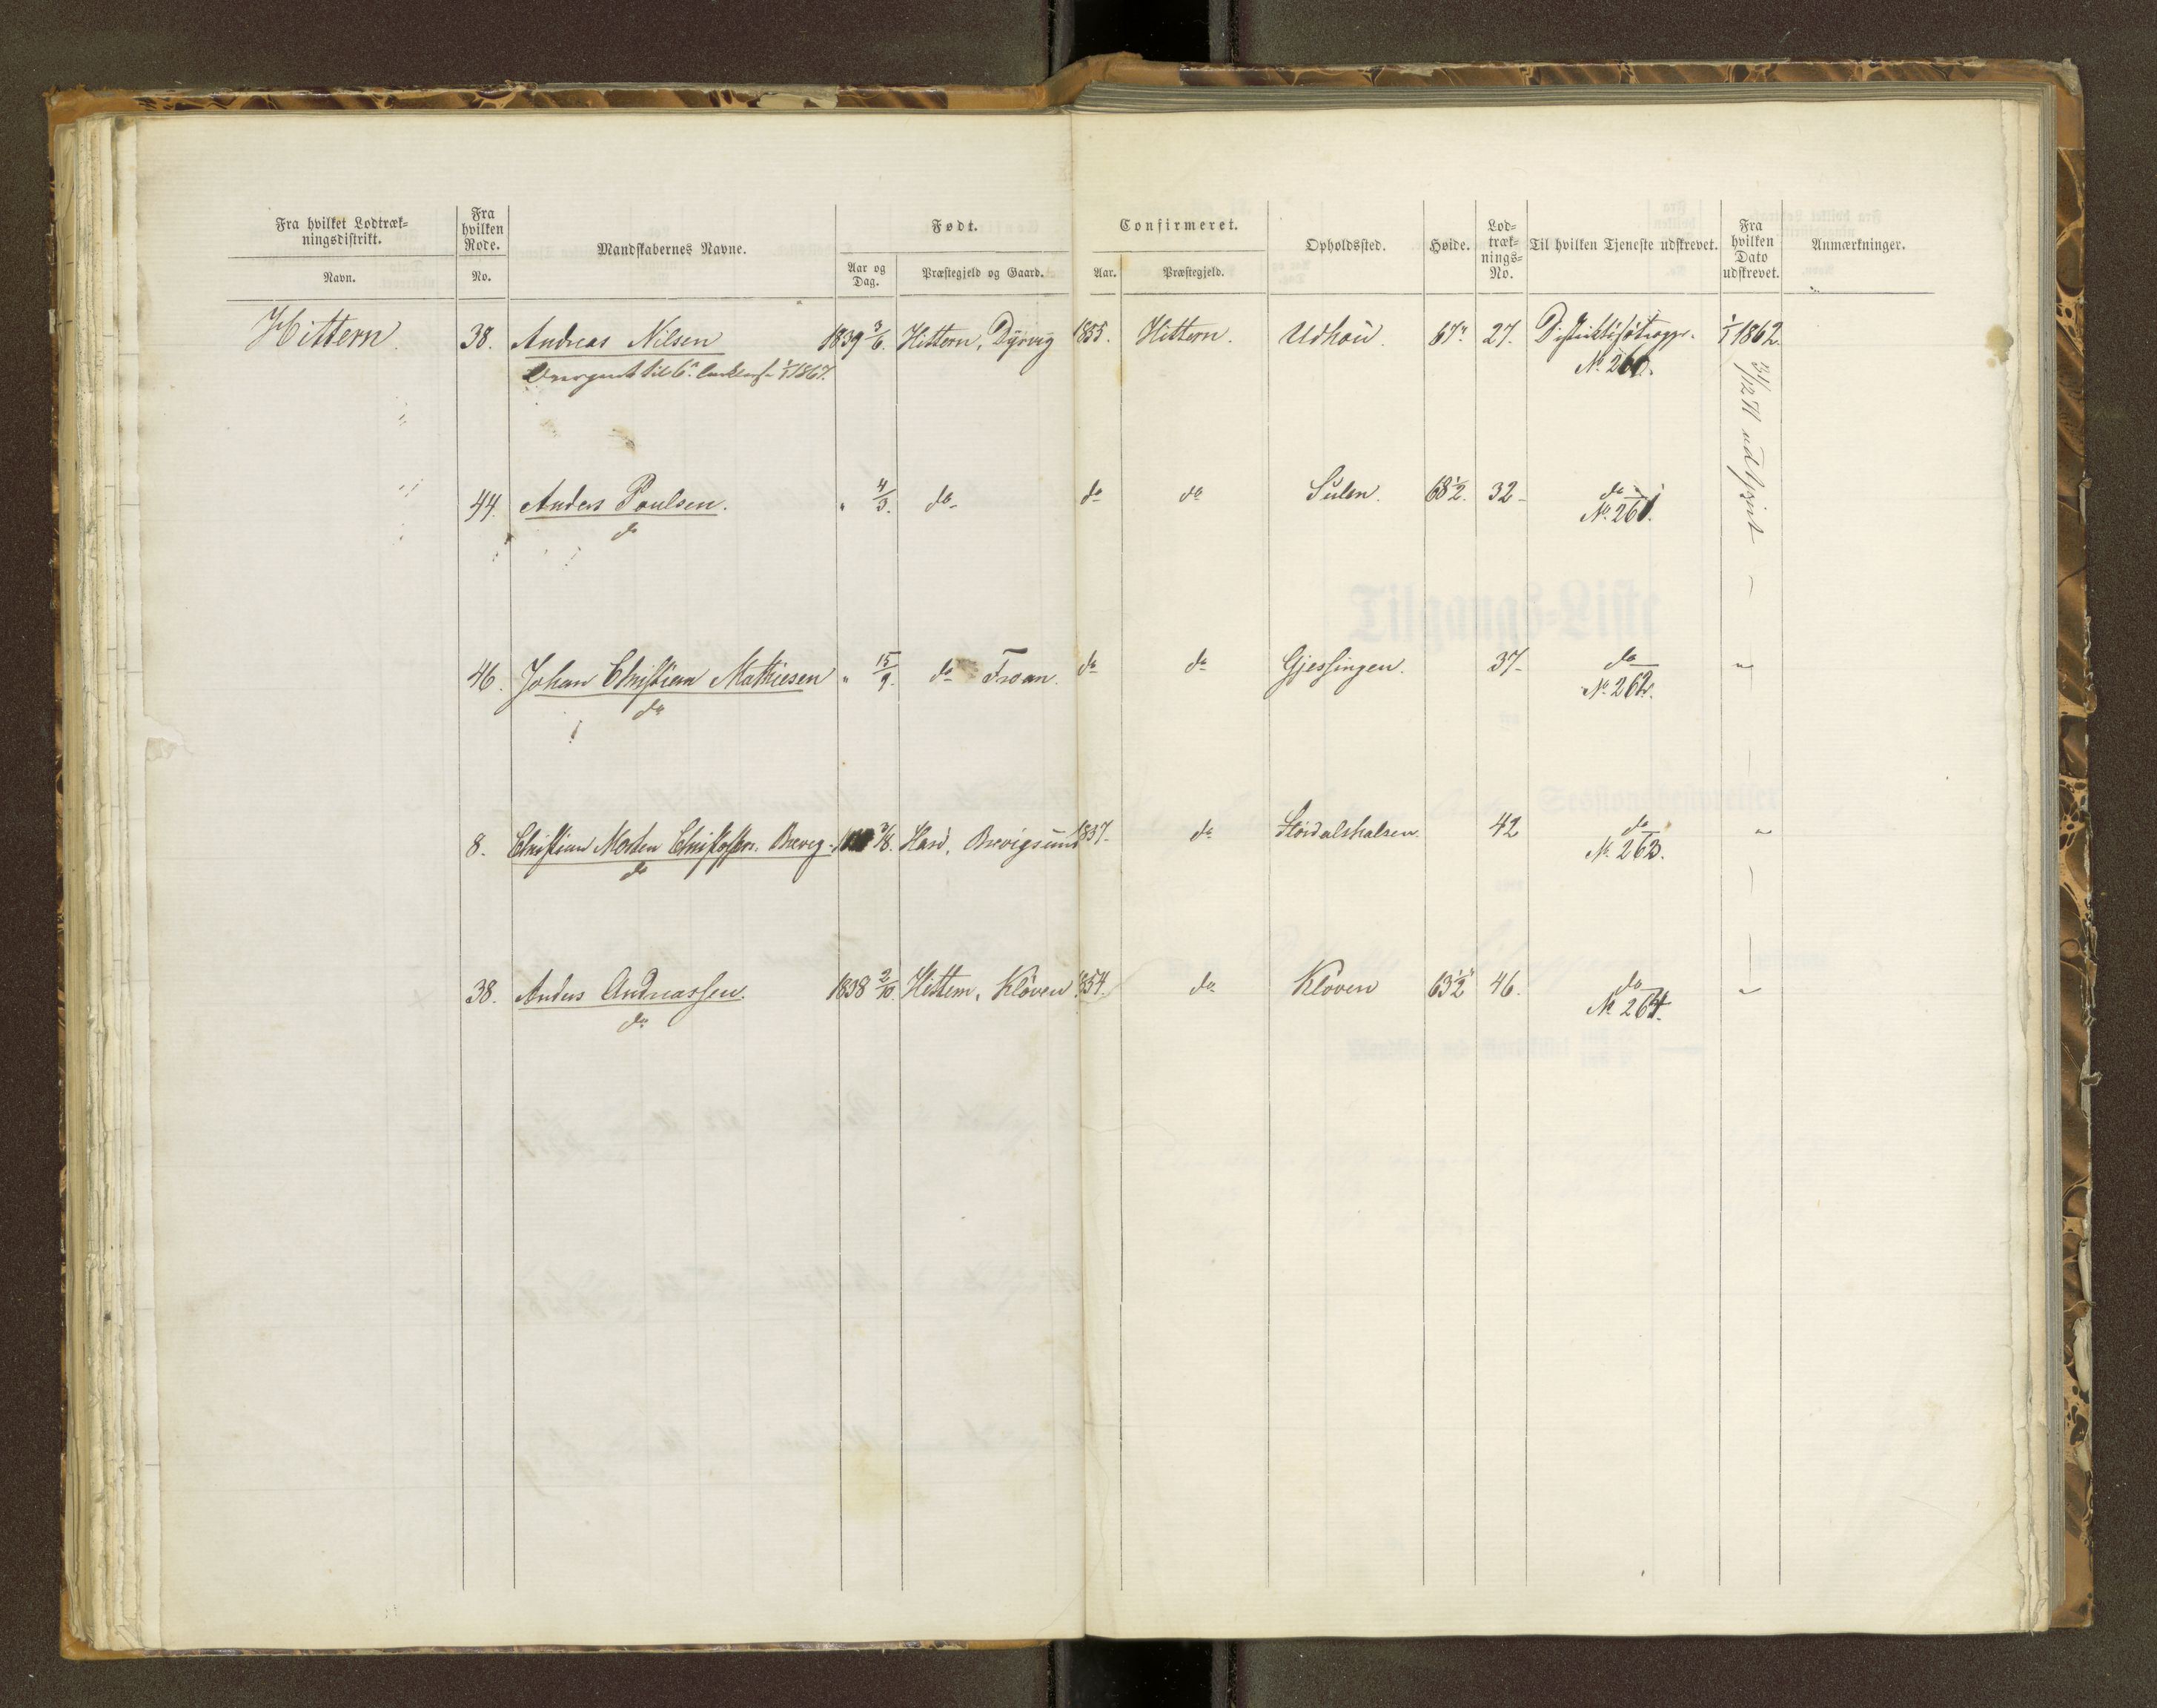 Fra hvilket Lodtræk-
ningsdistrikt.
Navn.
Fra
hvilken
Rode.
No.
Mandskabernes Navne.
Født.
Aar og
Dag.
Præstegjeld og Gaard.
Confirmeret.
Aar.
Præstegjeld.
Opholdssted.
Høide.
Lod-
træk-
nings-
No.
Til hvilken Tjeneste udskrevet.
Fra
hvilken
Dato
udskrevet.
Anmærkninger.
Hittern 38. Andreas Nilsen 1839 3/6. Hittern, Dyrvig 1855. Hittern. Udhoü. 67" 27. 1/1 1862.
til 1/1 1867. No. 260.
44. Anders Poulsen. " 4/3. do do do Sulen. 68 1/2. 32 do
do No. 261.
46. Johan Christian Mathiesen " 15/9. do Froan. do do Gjessingen. 37 do "
do No. 262.
8. Christian Morten Christoffer. Brevig. 3/8. Harø, Brevigsund 1837. do Stördalshalsen. 42 do "
do No. 263.
38. Anders Andreassen. 1838 2/10. Hittern, Kløven 1854. do Kløven 63 1/2" 46. do "
do No 264.
31/12 71
Tilgangs-Liste